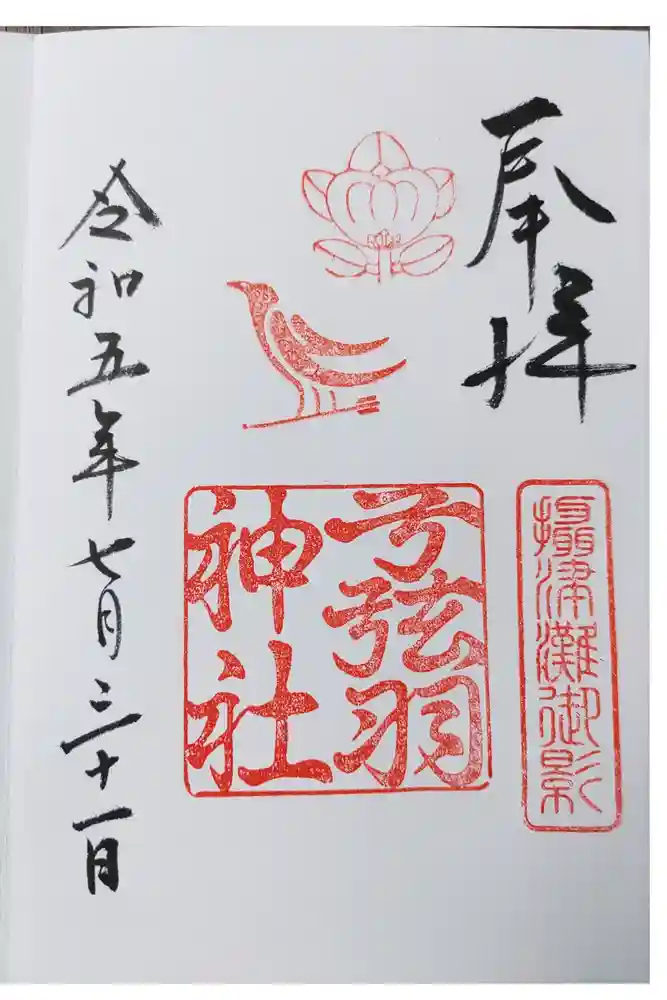 奉拝
摂津灘御影
弓弦羽
神社
令和五年七月三十一日